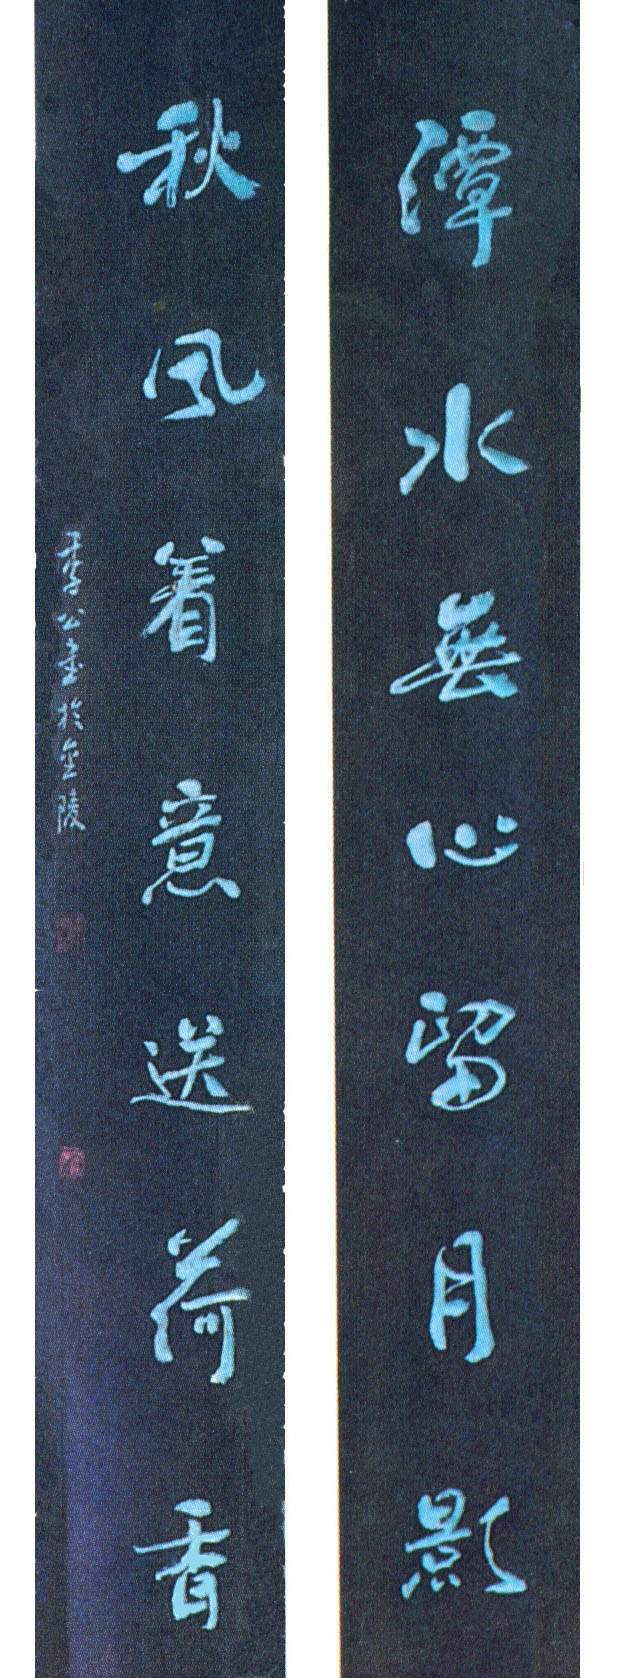 潭水無心留月影
秋風着意送荷香
於金陵